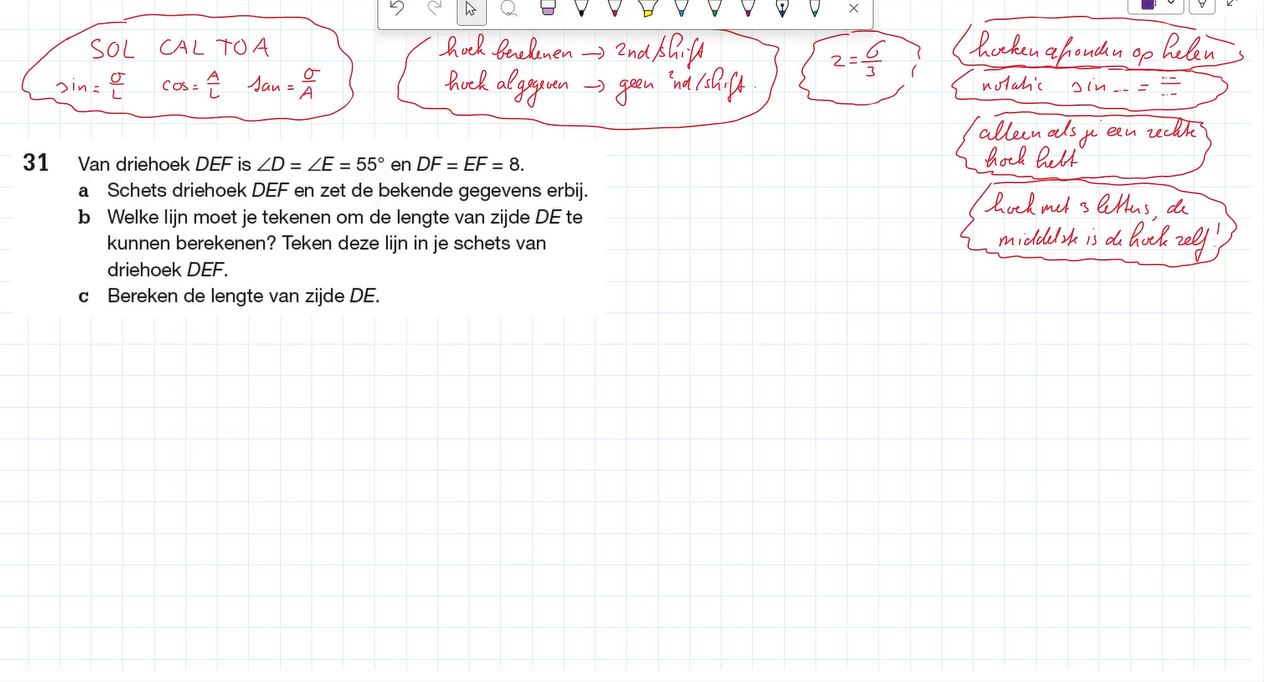 SOL CAL TOA
sin = O/L cos = A/L tan = O/A
hoek berekenen → 2nd/shift
hoek al gegeven → geen 2nd/shift.
2 = 6/3
hoeken afronden op helen
notatie sin ... = ...
alleen als je een rechte
hoek hebt
hoek met 3 letters, de
middelste is de hoek zelf!
31 Van driehoek DEF is ∠D = ∠E = 55° en DF = EF = 8.
a Schets driehoek DEF en zet de bekende gegevens erbij.
b Welke lijn moet je tekenen om de lengte van zijde DE te
kunnen berekenen? Teken deze lijn in je schets van
driehoek DEF.
c Bereken de lengte van zijde DE.